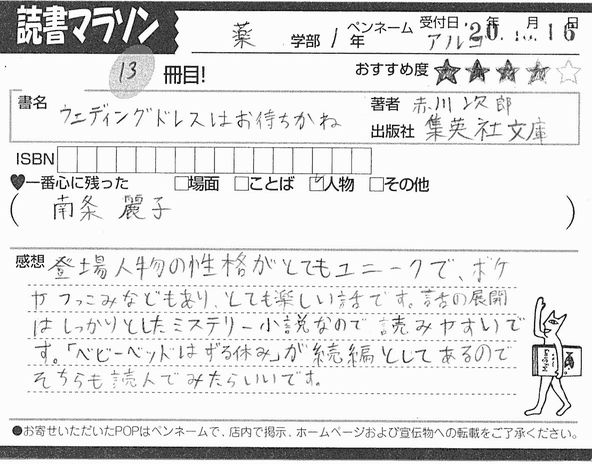 読書マラソン
薬 学部 1年
ペンネーム アルコ
受付日 '20年 月 16日
13 冊目!
おすすめ度
書名 ウエディングドレスはお待ちかね
著者 赤川次郎
出版社 集英社文庫
ISBN
♥一番心に残った □場面 □ことば □人物 □その他
(南条 麗子)
感想 登場人物の性格がとてもユニークで、ボケ
やつっこみなどもあり、とても楽しい話です。話の展開
はしっかりとしたミステリー小説なので読みやすいで
す。「ベビーベッドはずる休み」が続編としてあるので
そちらも読んでみたらいいです。
●お寄せいただいたPOPはペンネームで、店内で掲示、ホームページおよび宣伝物への転載をご了承ください。